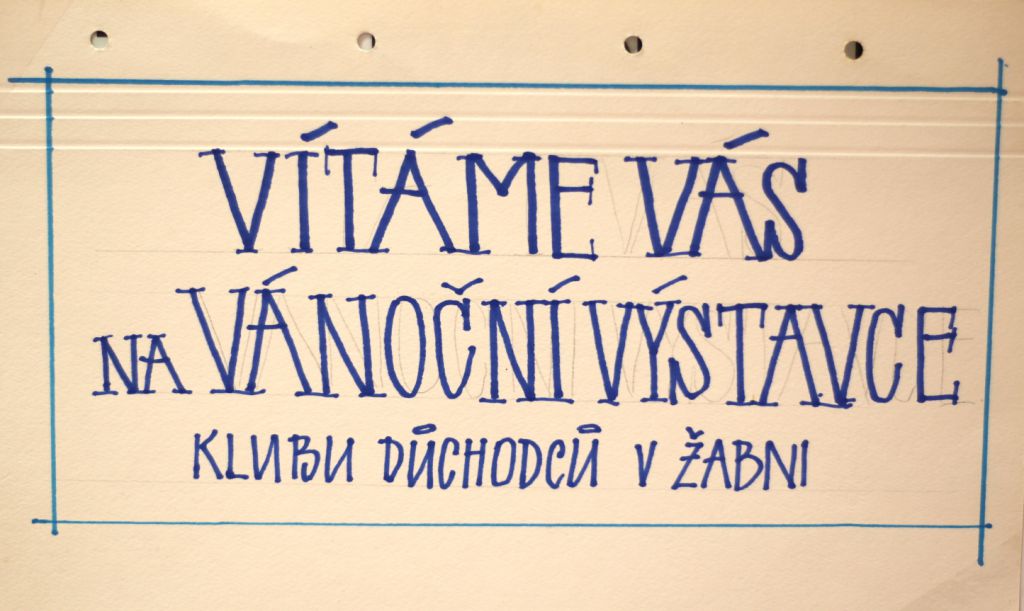 VÍTÁME VÁS
NA VÁNOČNÍ VÝSTAVCE
KLUBU DŮCHODCŮ V ŽABNI